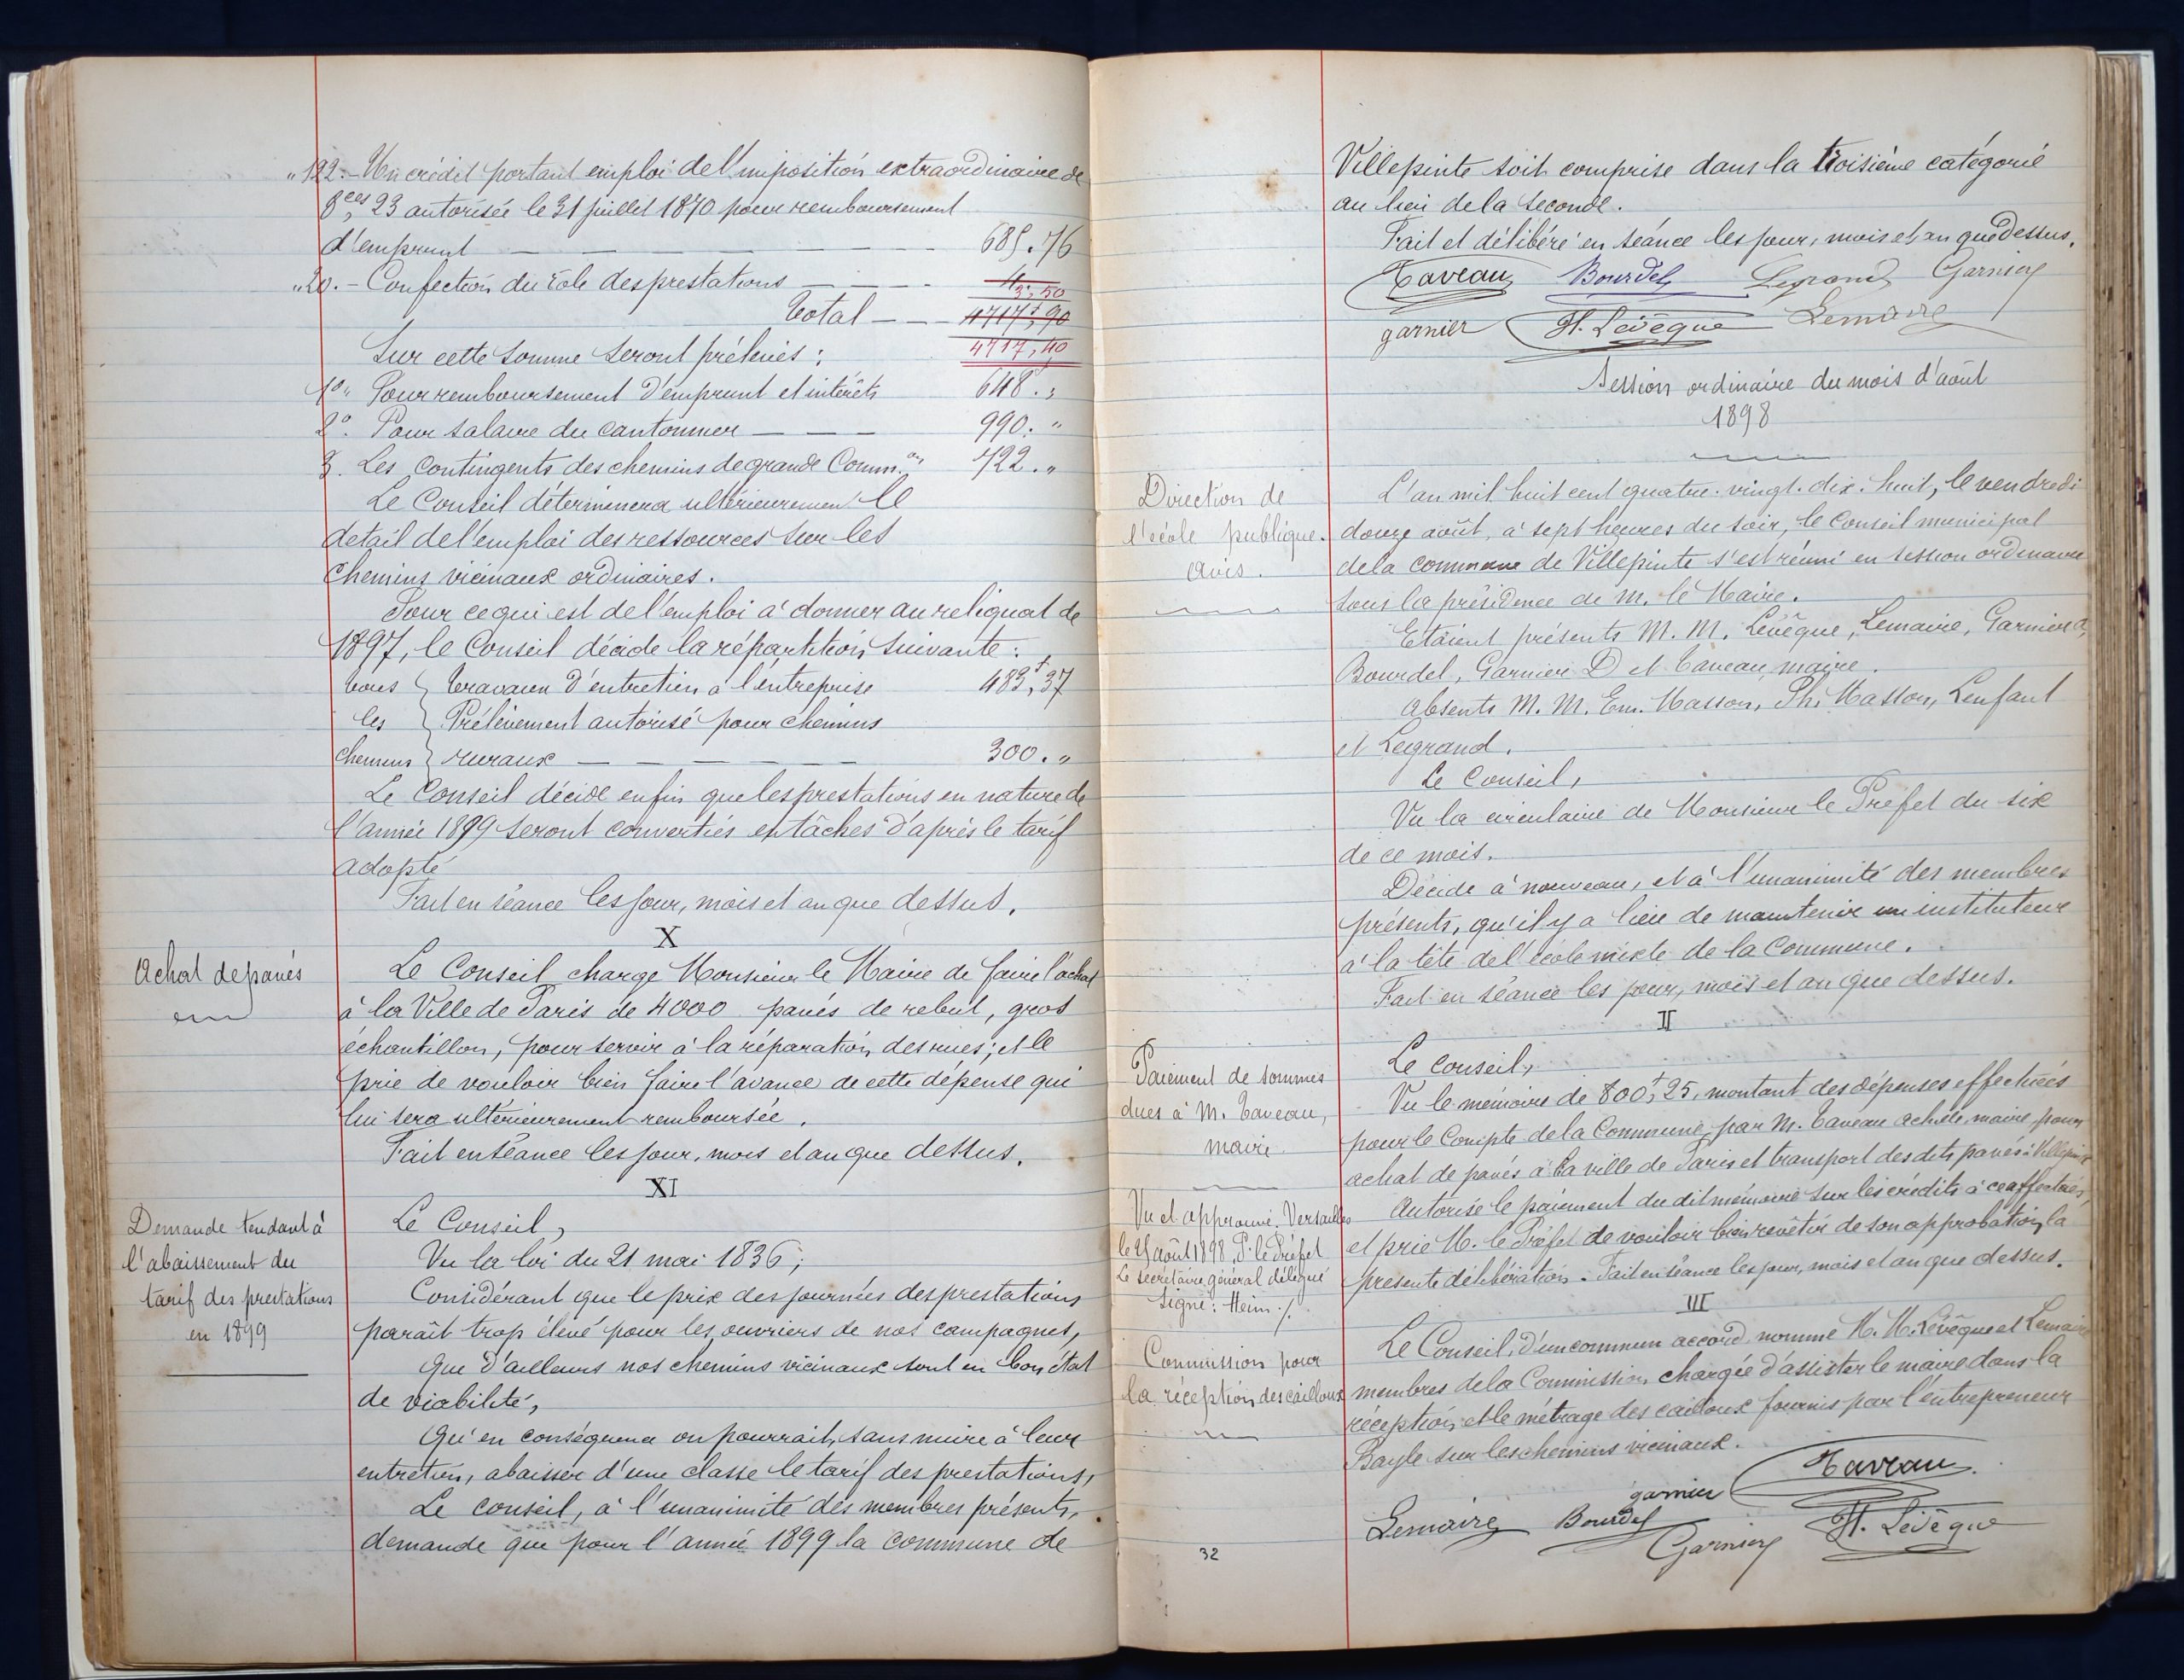 "122.- Un crédit portant emploi de l'imposition extraordinaire de
8ces, 23 autorisée le 31 juillet 1870 pour remboursement
d'emprunt — — — — — 685.76
"20.- Confection du rôle des prestations — — — 3,50
Total — — 4717f,90
4717,40
Sur cette somme seront prélevés :
1°" Pour remboursement d'emprunt et intérêts 648."
2°. Pour salaire du cantonnier — — — 990. "
3. Les contingents des chemins de grande Comm.on 722."
Le Conseil déterminera ultérieurement le
détail de l'emploi des ressources sur les
chemins vicinaux ordinaires.
Pour ce qui est de l'emploi à donner au reliquat de
1897, le Conseil décide la répartition suivante :
tous { Travaux d'entretien à l'entreprise 483f,37
les { Prélèvement autorisé pour chemins
chemins { ruraux — — — — — — 300."
Le Conseil décide enfin que les prestations en nature de
l'année 1899 seront converties en tâches d'après le tarif
adopté
Fait en séance les jour, mois et an que dessus.
X
Achat de pavés
Le Conseil charge Monsieur le Maire de faire l'achat
à la Ville de Paris de 4000 pavés de rebut, gros
échantillon, pour servir à la réparation des rues ; et le
prie de vouloir bien faire l'avance de cette dépense qui
lui sera ultérieurement remboursée.
Fait en séance les jour, mois et an que dessus.
XI
Demande tendant à
l'abaissement du
tarif des prestations
en 1899
Le Conseil,
Vu la loi du 21 mai 1836 ;
Considérant que le prix des journées des prestations
paraît trop élevé pour les ouvriers de nos campagnes,
Que d'ailleurs nos chemins vicinaux sont en bon état
de viabilité,
Qu'en conséquence on pourrait, sans nuire à leur
entretien, abaisser d'une classe le tarif des prestations,
Le conseil, à l'unanimité des membres présents,
demande que pour l'année 1899 la commune de
Villepinte soit comprise dans la troisième catégorie
au lieu de la seconde.
Fait et délibéré en séance les jour, mois et an que dessus.
Taveau Bourdel Legrand Garnier
garnier H. Levêque Lemaire
Session ordinaire du mois d'août
1898
Direction de
l'école publique.
Avis.
L'an mil huit cent quatre-vingt-dix-huit, le vendredi
douze août, à sept heures du soir, le Conseil municipal
de la commune de Villepinte s'est réuni en session ordinaire
sous la présidence de M. le Maire.
Etaient présents M. M. Levêque, Lemaire, Garnier A,
Bourdel, Garnier D et Taveau, maire.
Absents M. M. Em. Masson, Ph. Masson, Lenfant
et Legrand.
Le Conseil,
Vu la circulaire de Monsieur le Préfet du six
de ce mois.
Décide à nouveau, et à l'unanimité des membres
présents, qu'il y a lieu de maintenir un instituteur
à la tête de l'école mixte de la Commune.
Fait en séance les jour, mois et an que dessus.
II
Paiement de sommes
dues à M. Taveau,
maire.
Le conseil,
Vu le mémoire de 800f,25, montant des dépenses effectuées
pour le Compte de la Commune, par M. Taveau Achille, maire, pour
achat de pavés à la ville de Paris et transport des dits pavés à Villepinte
Autorise le paiement du dit mémoire sur les crédits à ce affectués,
et prie M. le Préfet de vouloir bien revêtir de son approbation la
présente délibération. Fait en séance les jour, mois et an que dessus.
Vu et approuvé. Versailles
le 25 août 1898. P. le Préfet
Le secrétaire général délégué
Signé : Heim ./.
III
Commission pour
la réception des cailloux
Le Conseil, d'un commun accord, nomme M. M. Levêque et Lemaire
membres de la Commission chargée d'assister le maire dans la
réception et le métrage des cailloux fournis par l'entrepreneur
Bayle sur les chemins vicinaux.
Taveau
garnier
Lemaire Bourdel H. Levêque
Garnier
32